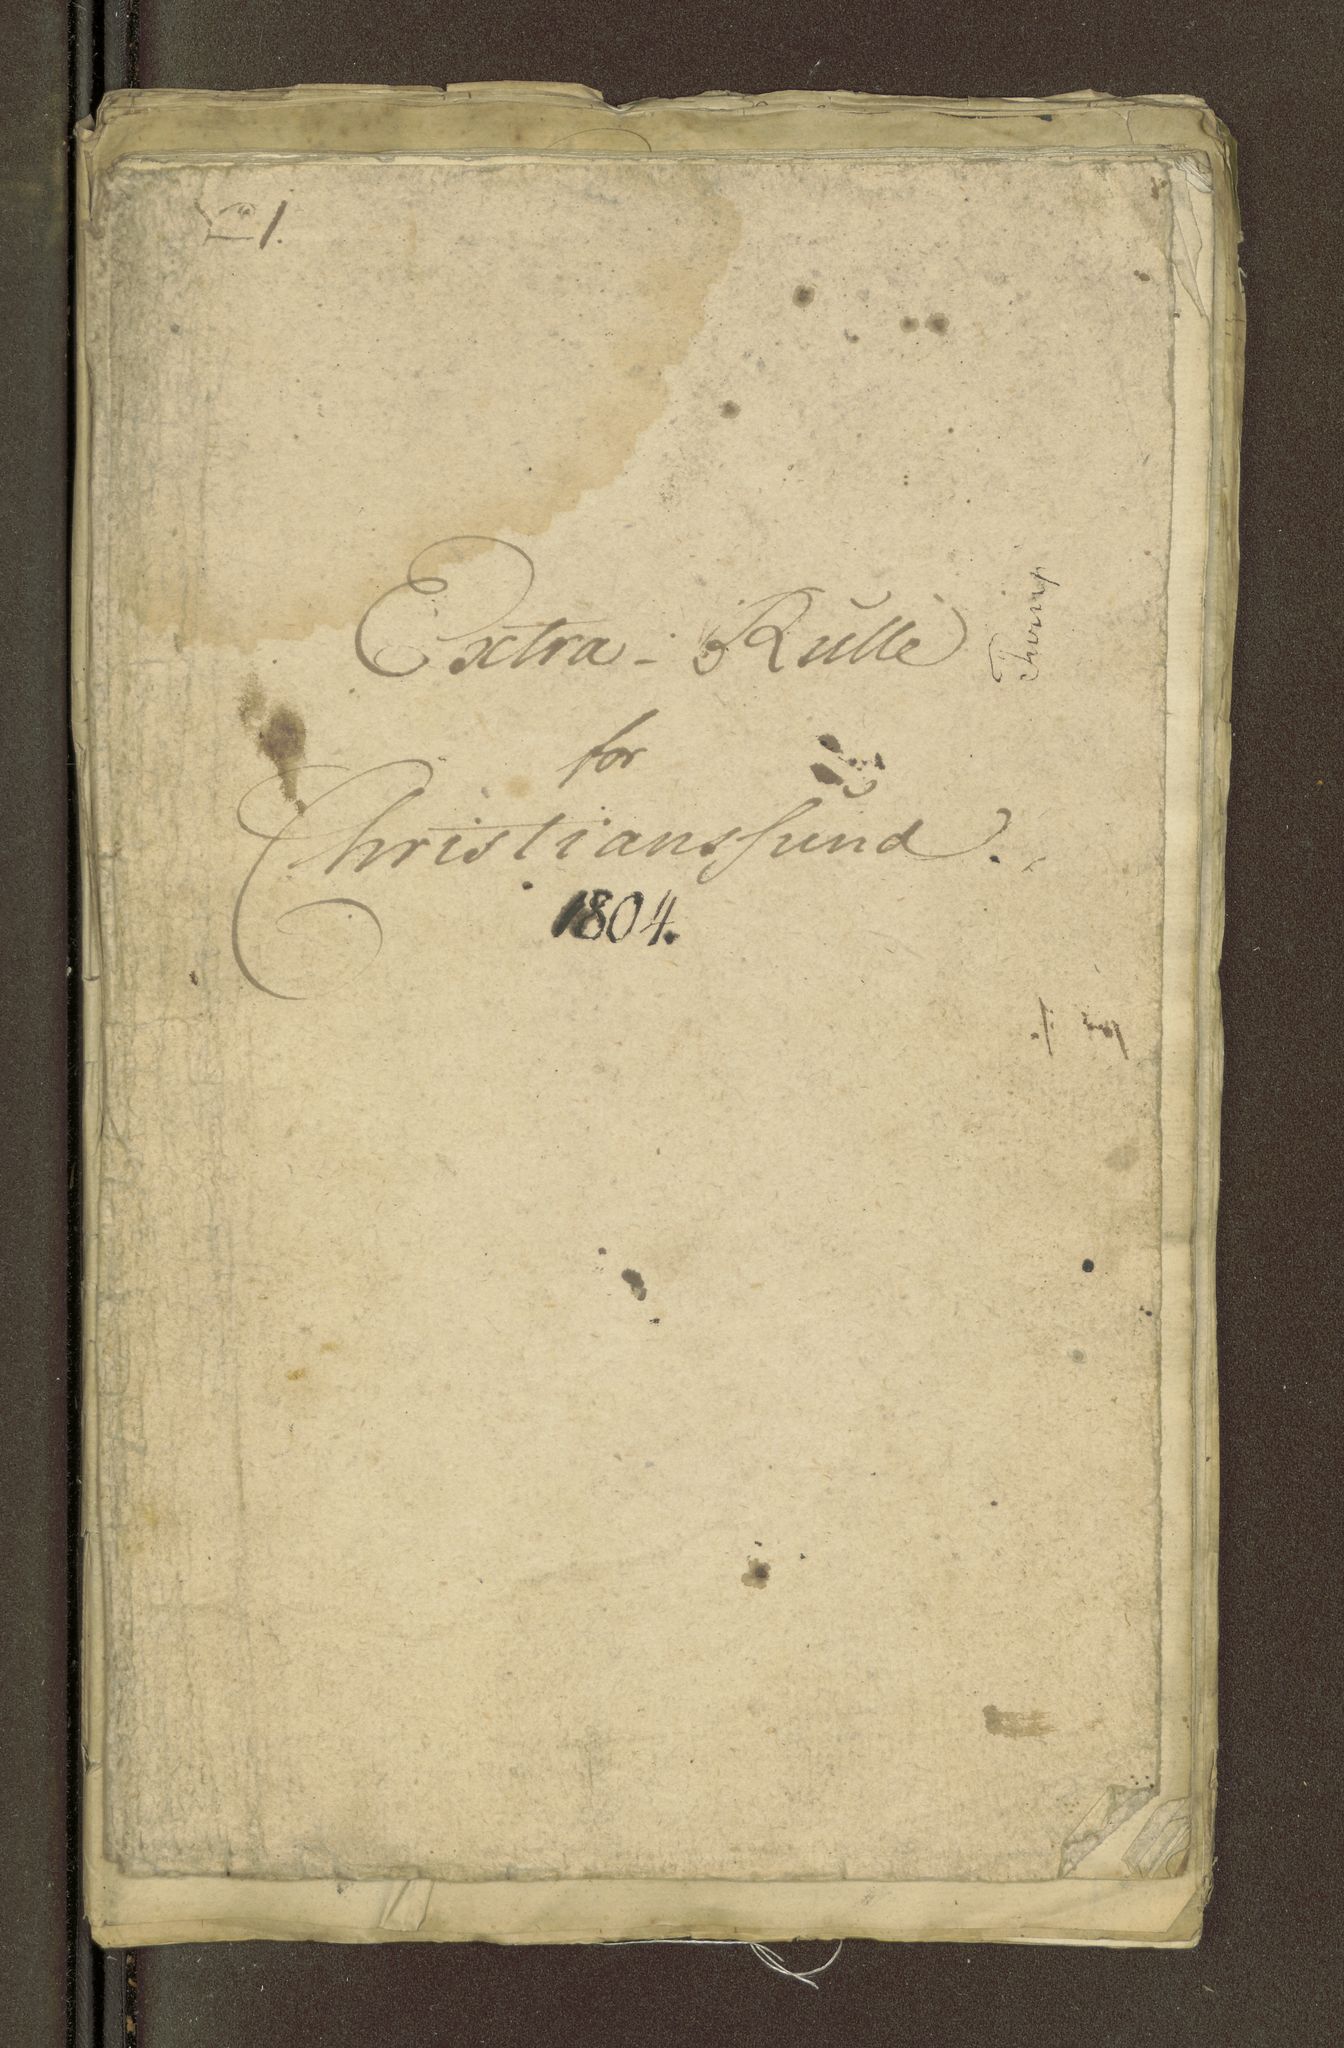 1.
Extra-Rulle
for
Christianssund.
1804.